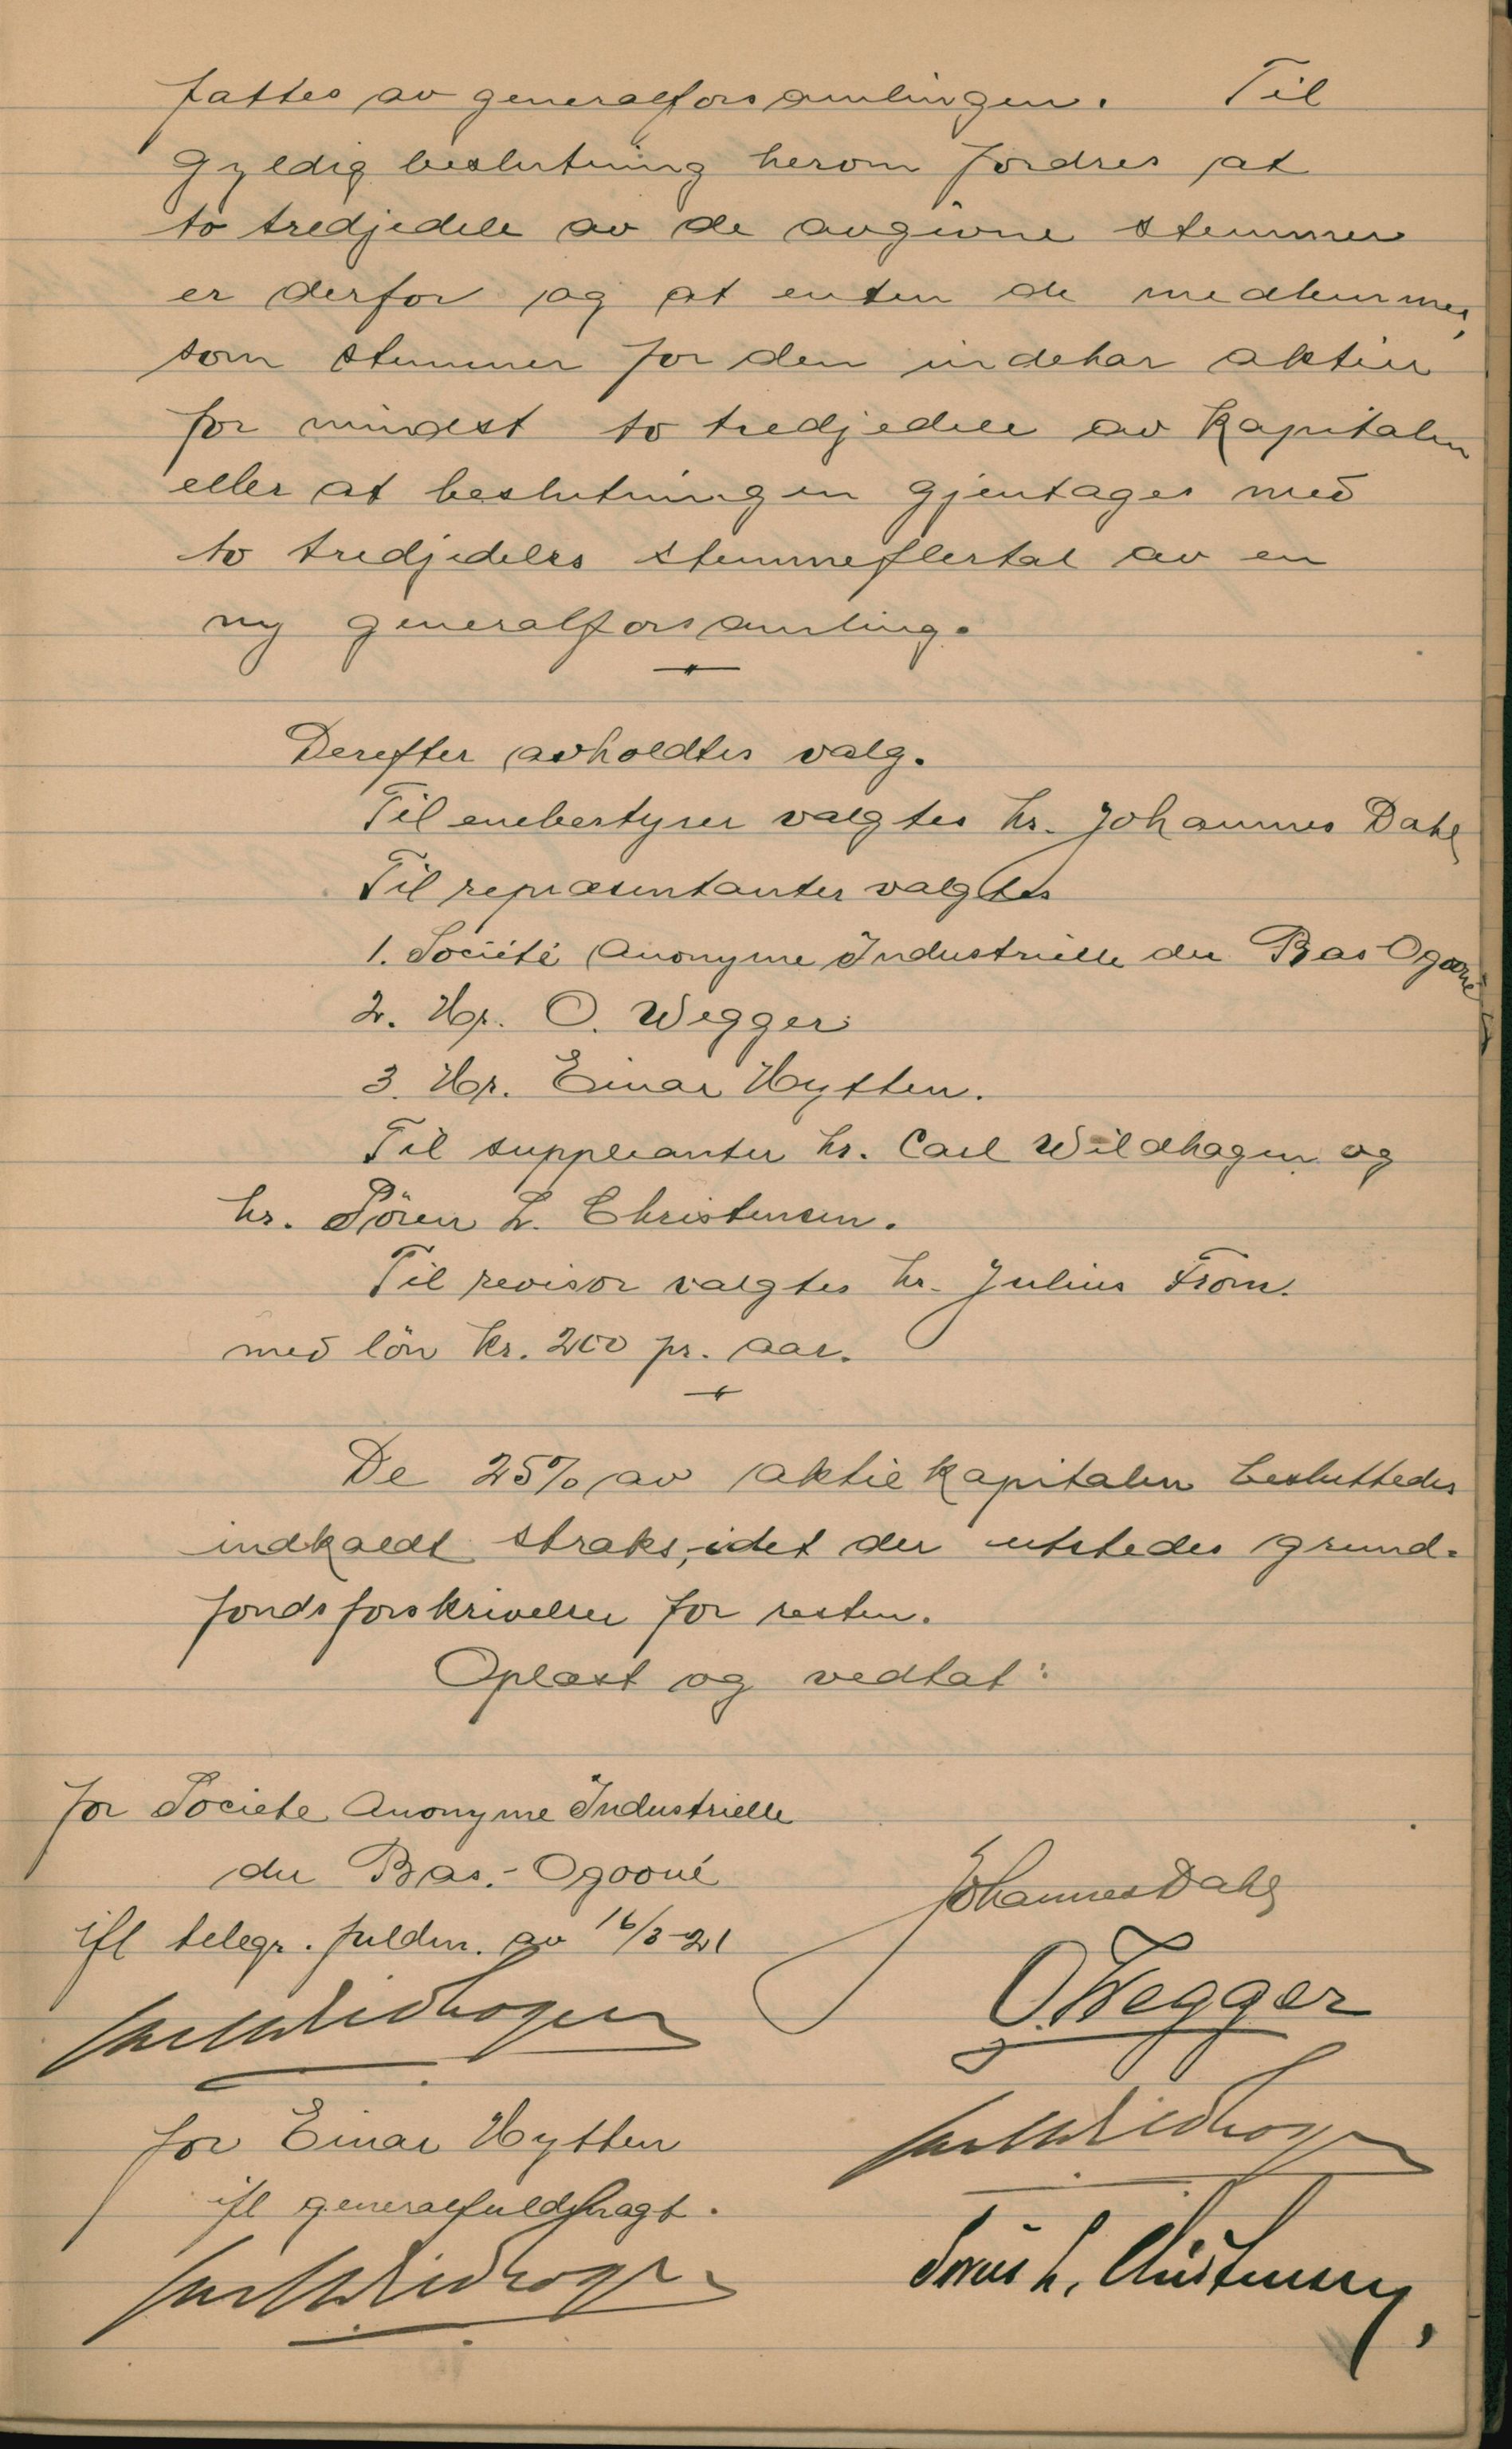 fattes av generalforsamlingen. Til
gyldig beslutning herom fordres at
to tredjedele av de avgivne stemmer
er derfor og at enten de medlemmer,
som stemmer for den indehar aktier
for mindst to tredjedele av kapitalen
eller at beslutningen gjentages med
to tredjedeles stemmeflertal av en
ny generalforsamling.
Derefter avholdtes valg.
Til enebestyrer valgtes hr. Johannes Dahl
Til repræsentanter valgtes
1. Société Anonyme Industrielle du Bas Ogooué
2. Hr. O. Wegger
3. Hr. Einar Hytten.
Til suppleanter hr. Carl Wildhagen og
hr. Sören L. Christensen.
Til revisor valgtes hr. Julius From.
med lön kr. 200 pr. aar.
De 25% av aktiekapitalen besluttedes
indkaldt straks, idet der utstedes grund-
fondsforskrivelser for resten.
Oplæst og vedtat:
for Societe Anonyme Industrielle
du Bas.-Ogooué
ifl telegr. fuldm. av 16/3-21
Carl Wildhagen
for Einar Hytten
ifl generalfuldmagt.
Carl Wildhagen
Johannes Dahl
O. Wegger
Carl Wildhagen
Sören L. Christensen.